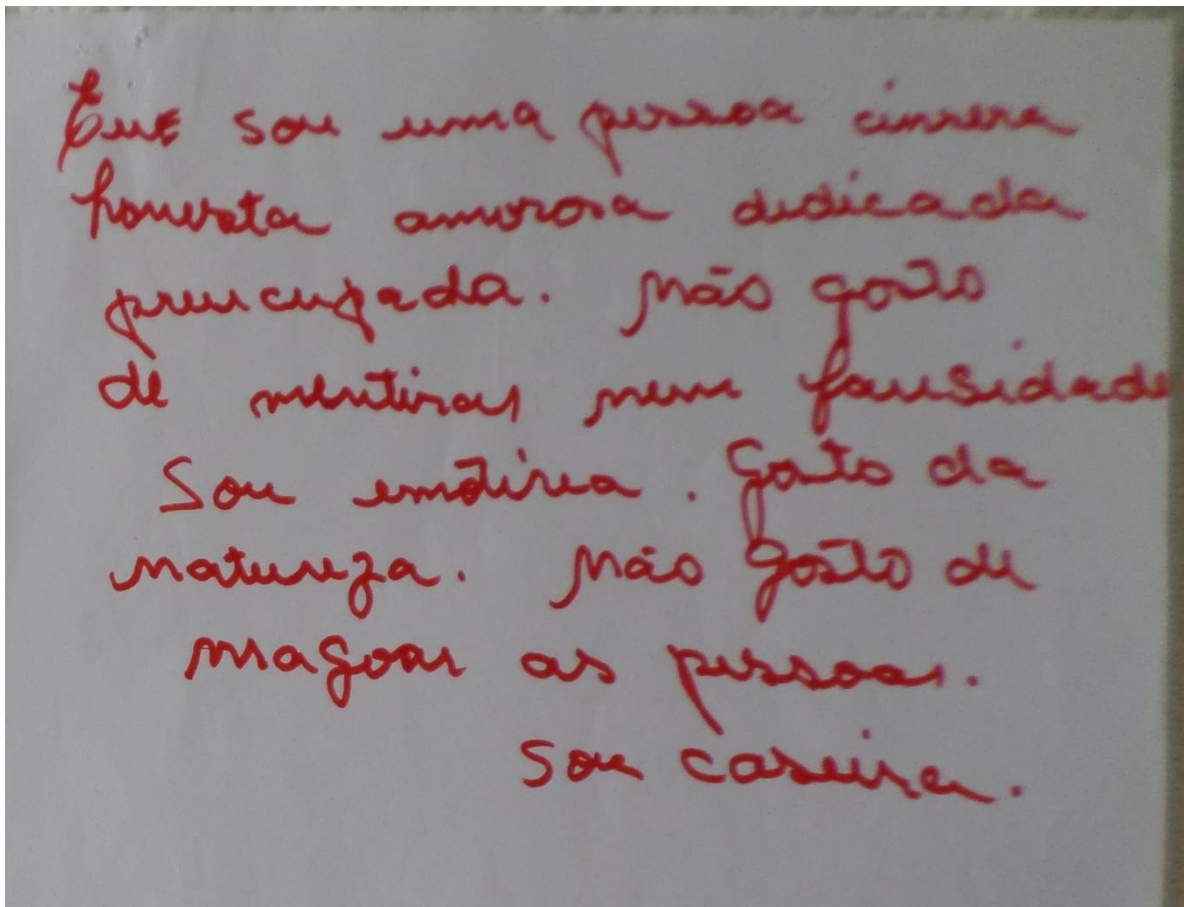 Eue sou uma pessoa cinsera
honesta amorosa dedicada
preucupada. Não gosto
de mentiras nem fausidade
Sou emotiva. Gosto da
natureza. Não gosto de
magoar as pessoas.
Sou caseira.